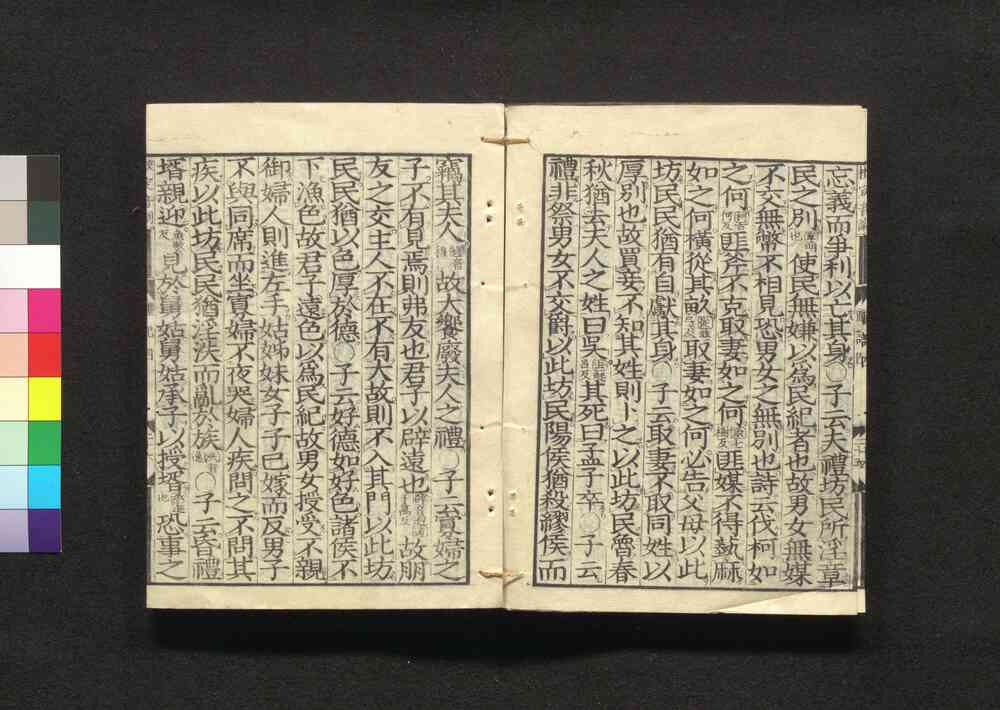 忘義而爭利以亡其身〇子云夫禮坊民所淫章
民之別也使民無嫌以爲民紀者也故男女無媒
不交無幣不相見恐男女之無別也詩云伐柯如
之何匪斧不克取妻如之何匪媒不得蓺麻
如之何橫從其畝取妻如之何必告父母以此
坊民民猶有自獻其身〇子云取妻不取同姓以
厚別也故買妾不知其姓則卜之以此坊民魯春
秋猶去夫人之姓曰吳其死曰孟子卒〇子云
禮非祭男女不交爵以此坊民陽侯猶殺繆侯而
竊其夫人故大饗廢夫人之禮〇子云寡婦之
子不有見焉則弗友也君子以辟遠也故朋
友之交主人不在不有大故則不入其門以此坊
民民猶以色厚於德〇子云好德如好色諸侯不
下漁色故君子遠色以爲民紀故男女授受不親
御婦人則進左手姑姊妹女子子已嫁而反男子
不與同席而坐寡婦不夜哭婦人疾問之不問其
疾以此坊民民猶淫泆而亂於族〇子云昏禮
壻親迎見於舅姑舅姑承子以授壻恐事之